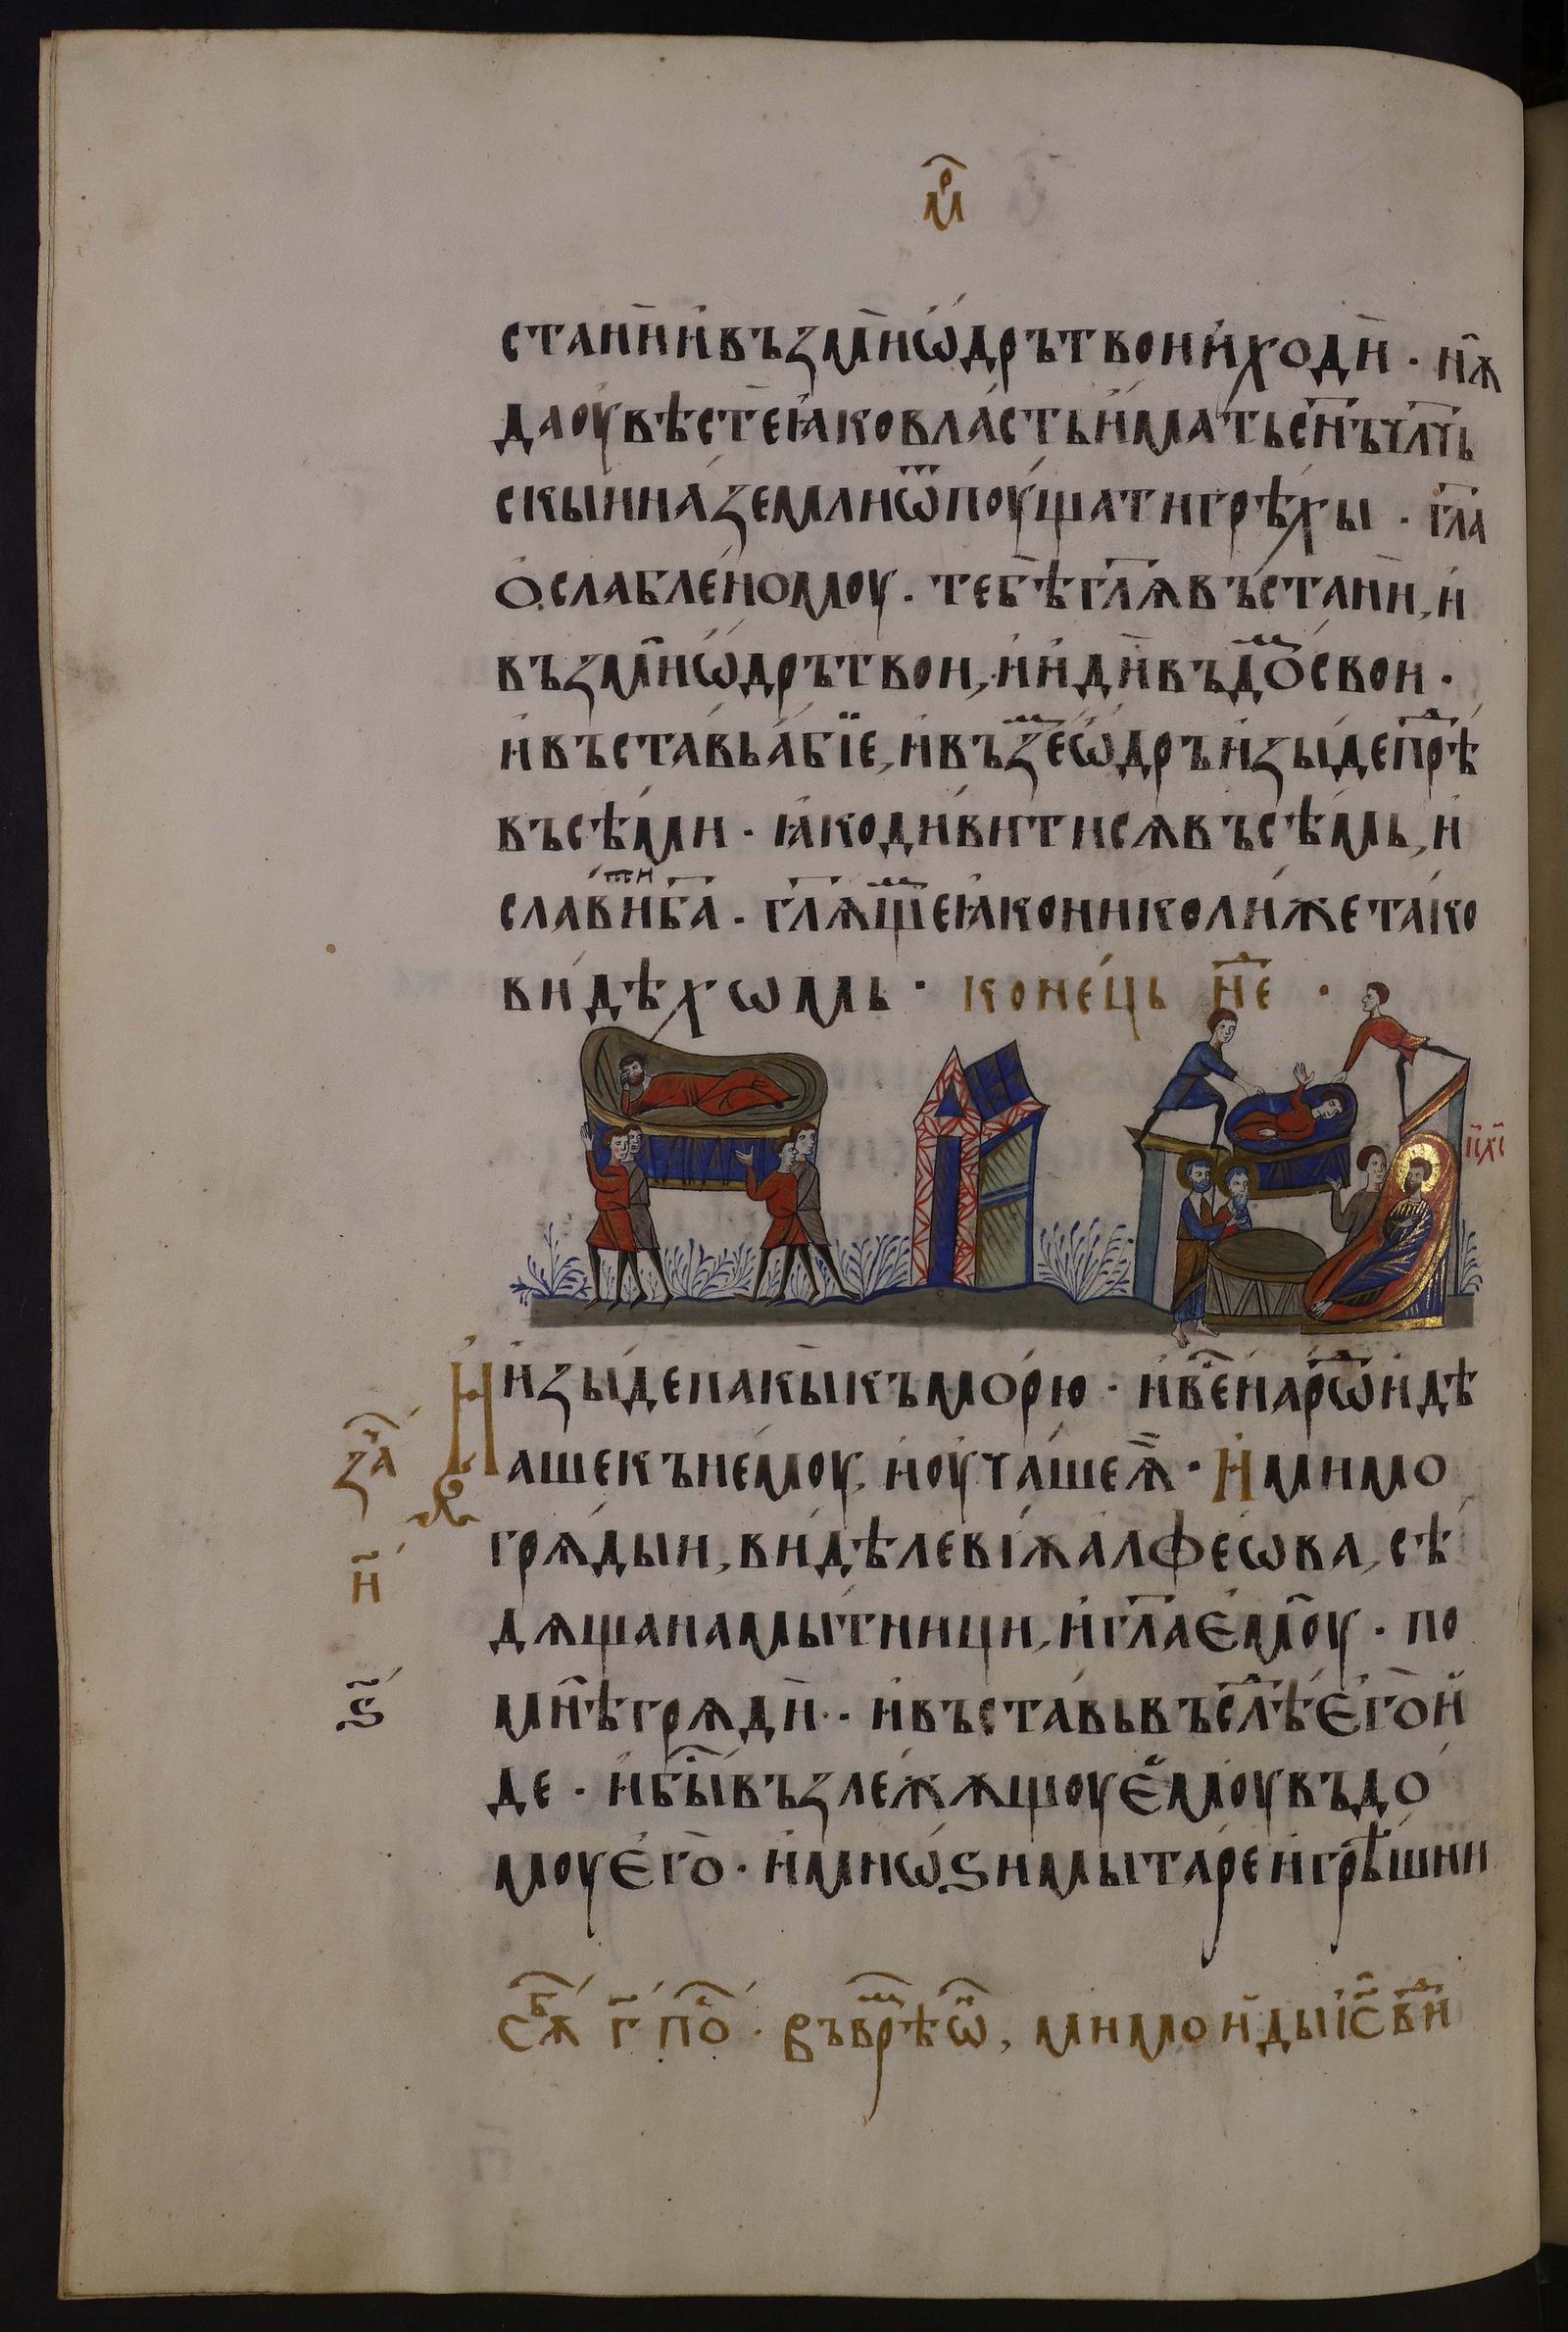 мр҃
стани҆ и҆ възми ѡ҆дръ твои и҆ ходи · нѫ
да оувѣсте ꙗ҆ко власть и҆мать сн҃ъ чл҃чь
скыи на земли ѿпоущати грѣхы · гл҃а
ѻ҆слабленомоу · тебѣ гл҃ѧ въстани, и҆
възми ѡ҆дръ твои, и҆ и҆ди въ доⷨ свои ·
и҆ въставь а҆бїе, и҆ въꙁеⷨ ѡ҆дръ и҆зыде прѣⷣ
въсѣми · ꙗ҆ко дивитисѧ въсѣмь, и҆
славиⷮи б҃а · гл҃ѧщеⷨ ꙗ҆ко николиже тако
видѣхѡмь · конець неⷣ ·
і҆с хс
И҆ и҆зыде пакы къ морю · и҆ веⷭ нарѡⷣ и҆дѣ
заⷱ
аше къ немоу, и҆ оучаше ѫ҆ · И҆ мимо
грѧдыи, видѣ левїѫ алфеѡва, сѣ
н҃
дѧща на мытници, и҆ гл҃а є҆моу · по
мнѣ грѧди · и҆ въставь въслѣⷣ є҆го и҆
ѕ҃
де · и҆ быⷭ възлежѫщоу є҆моу въ до
моу є҆го · и҆ мнѡѕи мытаре и҆ грѣшни
сѫⷠ г҃ поⷭ · въ врѣⷨ ѡⷩ, мимо и҆ды і҆с виⷣ